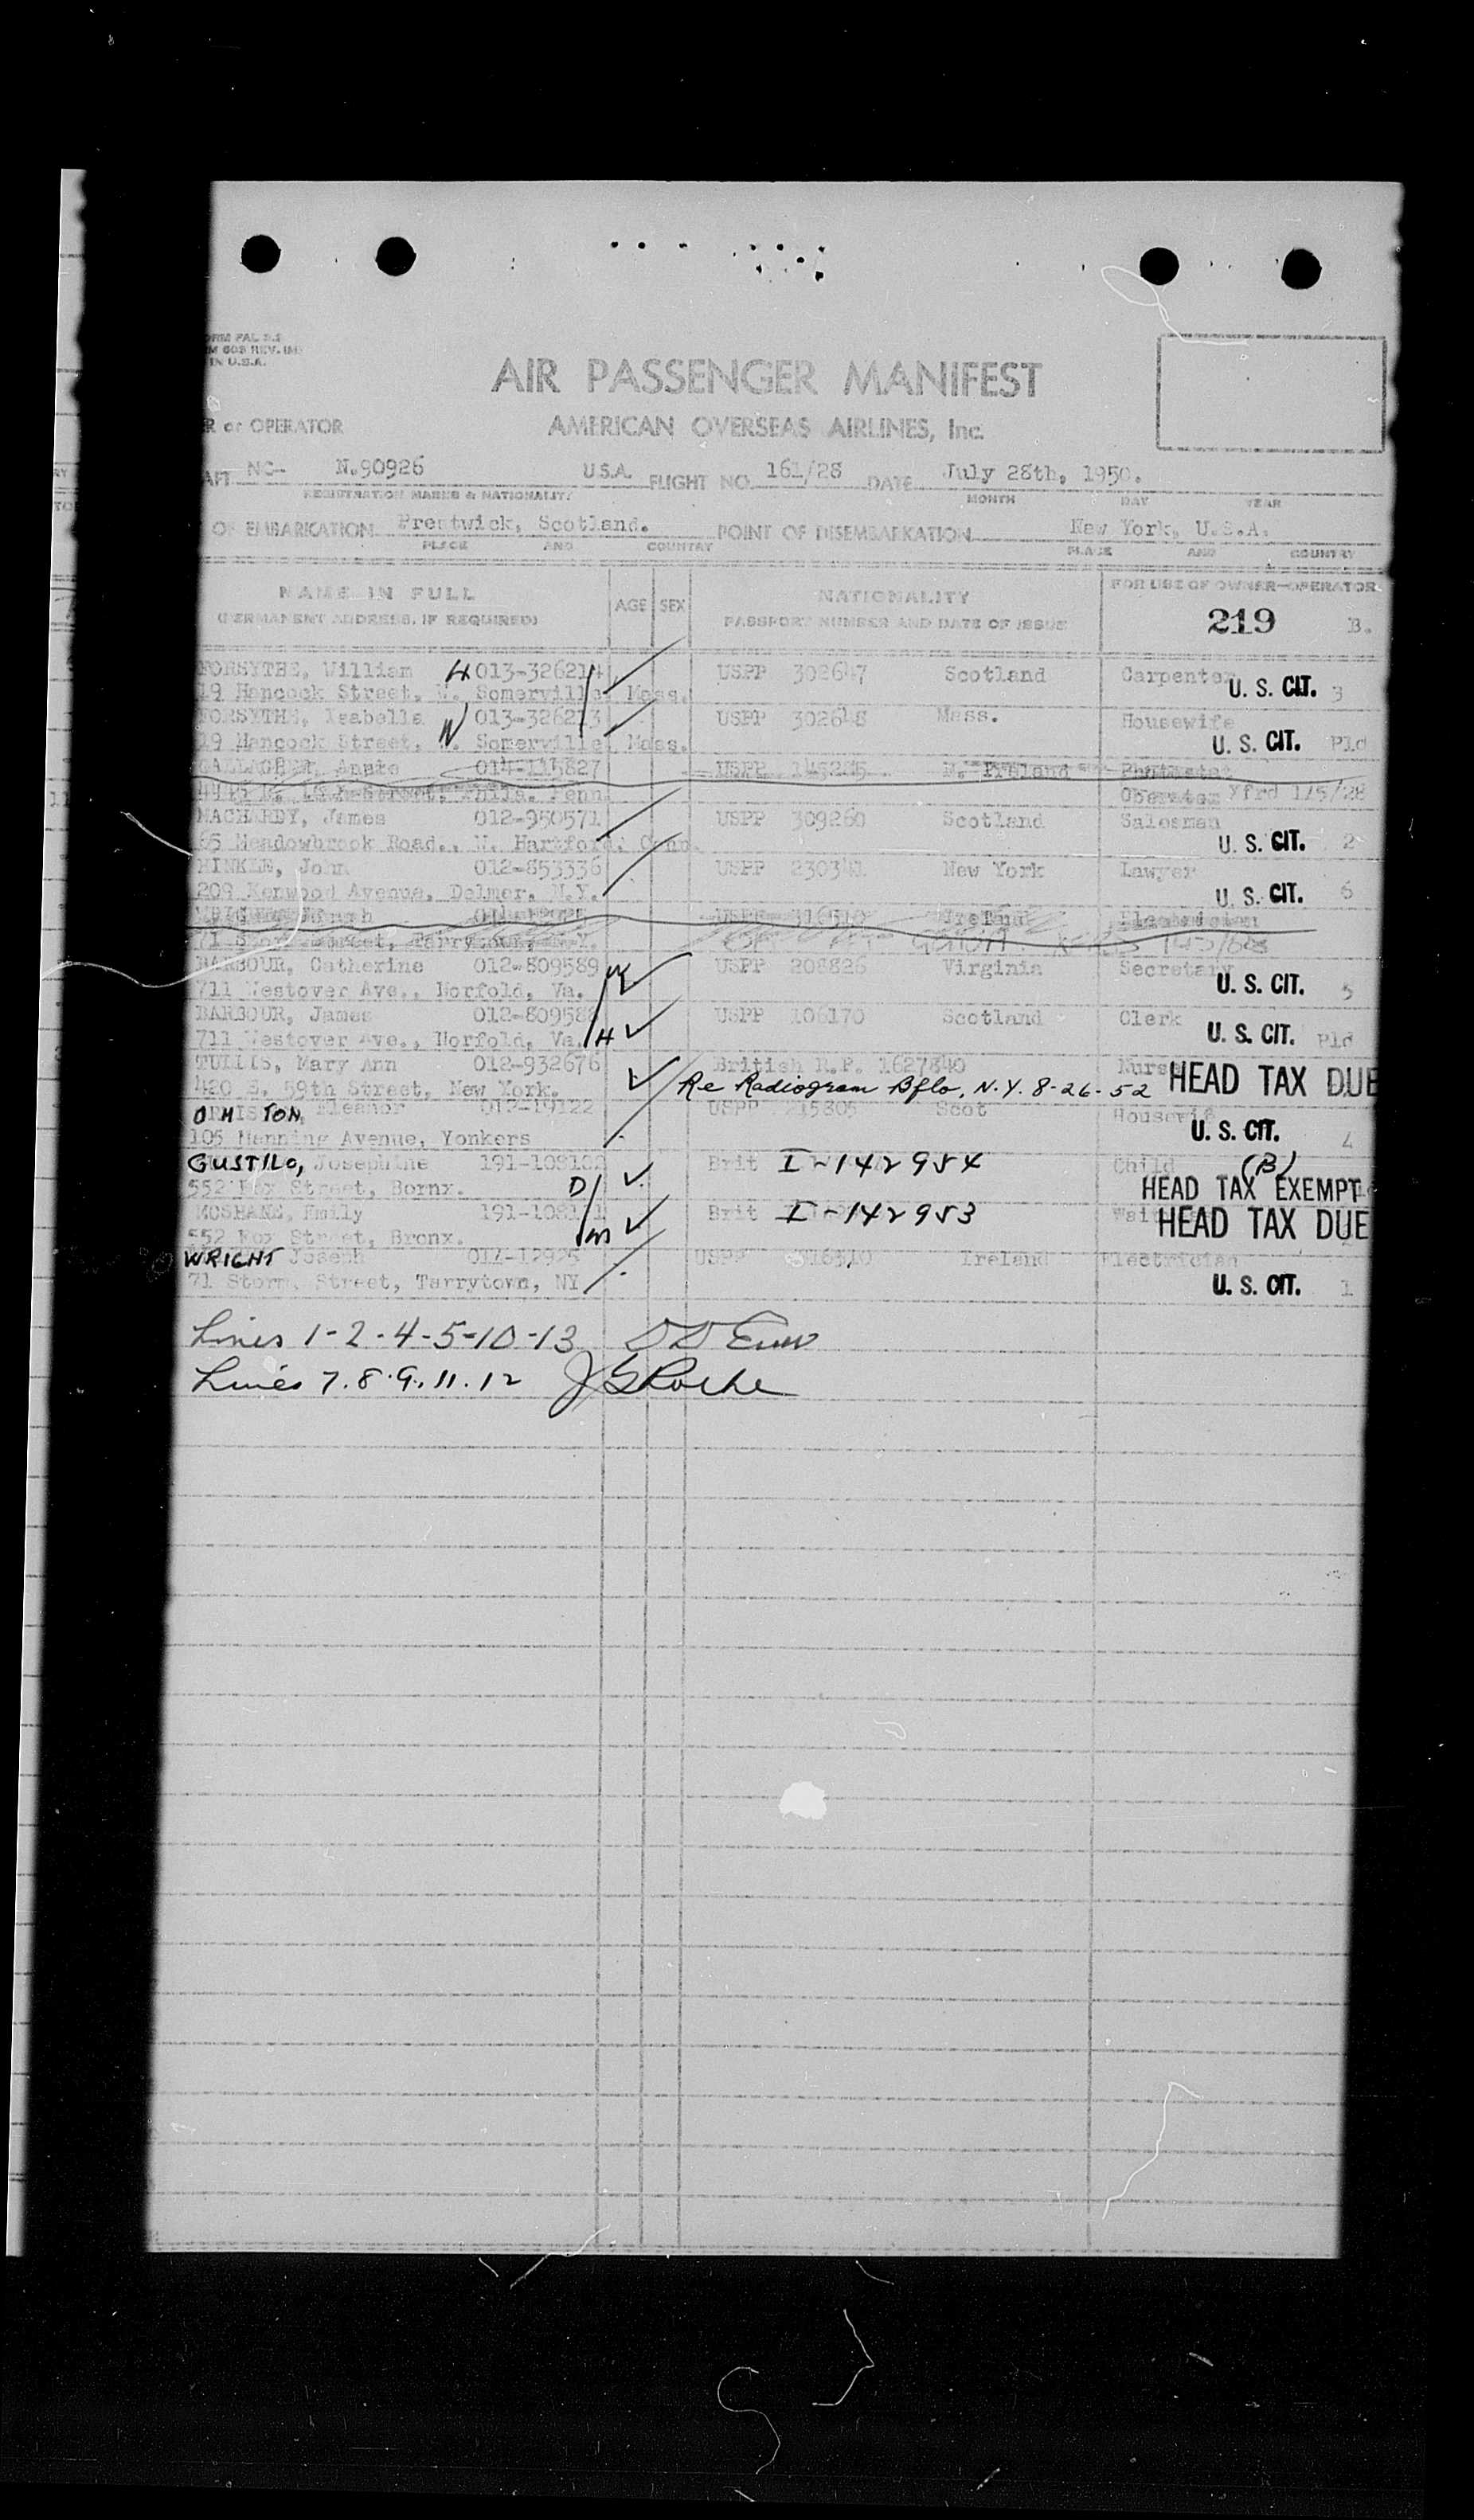 ORM PAL 5.1
M 605 REV. (M)
IN U.S.A.
AIR PASSENGER MANIFEST
R or OPERATOR AMERICAN OVERSEAS AIRLINES, Inc.
AFT NC- N.90926 U.S.A. FLIGHT NO. 161/28 DATE July 28th, 1950.
REGISTRATION MARKS & NATIONALITY MONTH DAY YEAR
OF EMBARKATION Prestwick, Scotland. POINT OF DISEMBARKATION New York, U.S.A.
PLACE AND COUNTRY PLACE AND COUNTRY
NAME IN FULL AGE SEX NATIONALITY FOR USE OF OWNER-OPERATOR
(PERMANENT ADDRESS, IF REQUIRED) PASSPORT NUMBER AND DATE OF ISSUE 219 B.
FORSYTHE, William H 013-326214 USPP 302647 Scotland Carpenter
19 Hancock Street, W. Somerville, Mass. U. S. CIT. 3
FORSYTHE, Isabella W 013-326213 USPP 302648 Mass. Housewife
19 Hancock Street, W. Somerville, Mass. U. S. CIT. Pld
GALLAGHER, Annie 014-115827 USPP 145245 N. Ireland
Street, Phila. Penn. Operator Xfrd 1/5/28
MACHARDY, James 012-950571 USPP 309260 Scotland Salesman
65 Meadowbrook Road., W. Hartford, Conn. U. S. CIT. 2
HINKLE, John 012-853336 USPP 230341 New York Lawyer
209 Kenwood Avenue, Delmer, N.Y. U. S. CIT. 6
USPP 316310 Ireland Electrician
71 Storm Street, Tarrytown, N.Y.
BARBOUR, Catherine 012-809589 W USPP 208826 Virginia Secretary
711 Westover Ave., Norfold, Va. U. S. CIT. 5
BARBOUR, James 012-809588 USPP 106170 Scotland Clerk
711 Westover Ave., Norfold, Va. H U. S. CIT. Pld
TULLIS, Mary Ann 012-932676 British R.P. 1627840 Nurse HEAD TAX DUE
420 E. 59th Street, New York. Re Radiogram Bflo, N.Y. 8-26-52
ORMISTON, Eleanor 012-19122 USPP 215805 Scot Housewife
105 Manning Avenue, Yonkers U. S. CIT. 4
GUSTILO, Josephine 191-108182 Brit I-142954 Child (B)
552 Fox Street, Bornx. D HEAD TAX EXEMPT
MCSHANE, Emily 191-108181 Brit I-142953 HEAD TAX DUE
552 Fox Street, Bronx. M
WRIGHT Joseph 014-12925 USPP 316310 Ireland Electrician
71 Storm, Street, Tarrytown, NY U. S. CIT. 1
Lines 1-2-4-5-10-13
Lines 7.8.9.11.12 J G Roche